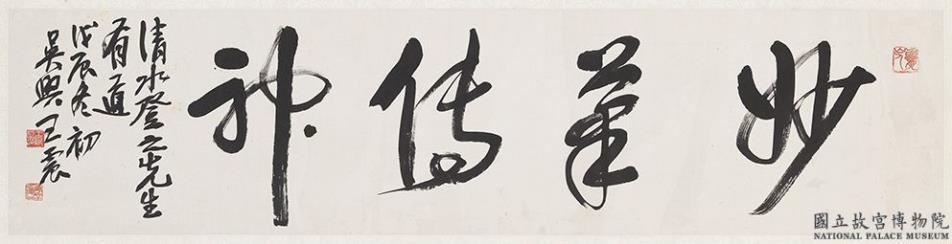 妙筆傳神
清水登之先生
有道
戊辰冬初
吳興王震
國立故宮博物院
NATIONAL PALACE MUSEUM